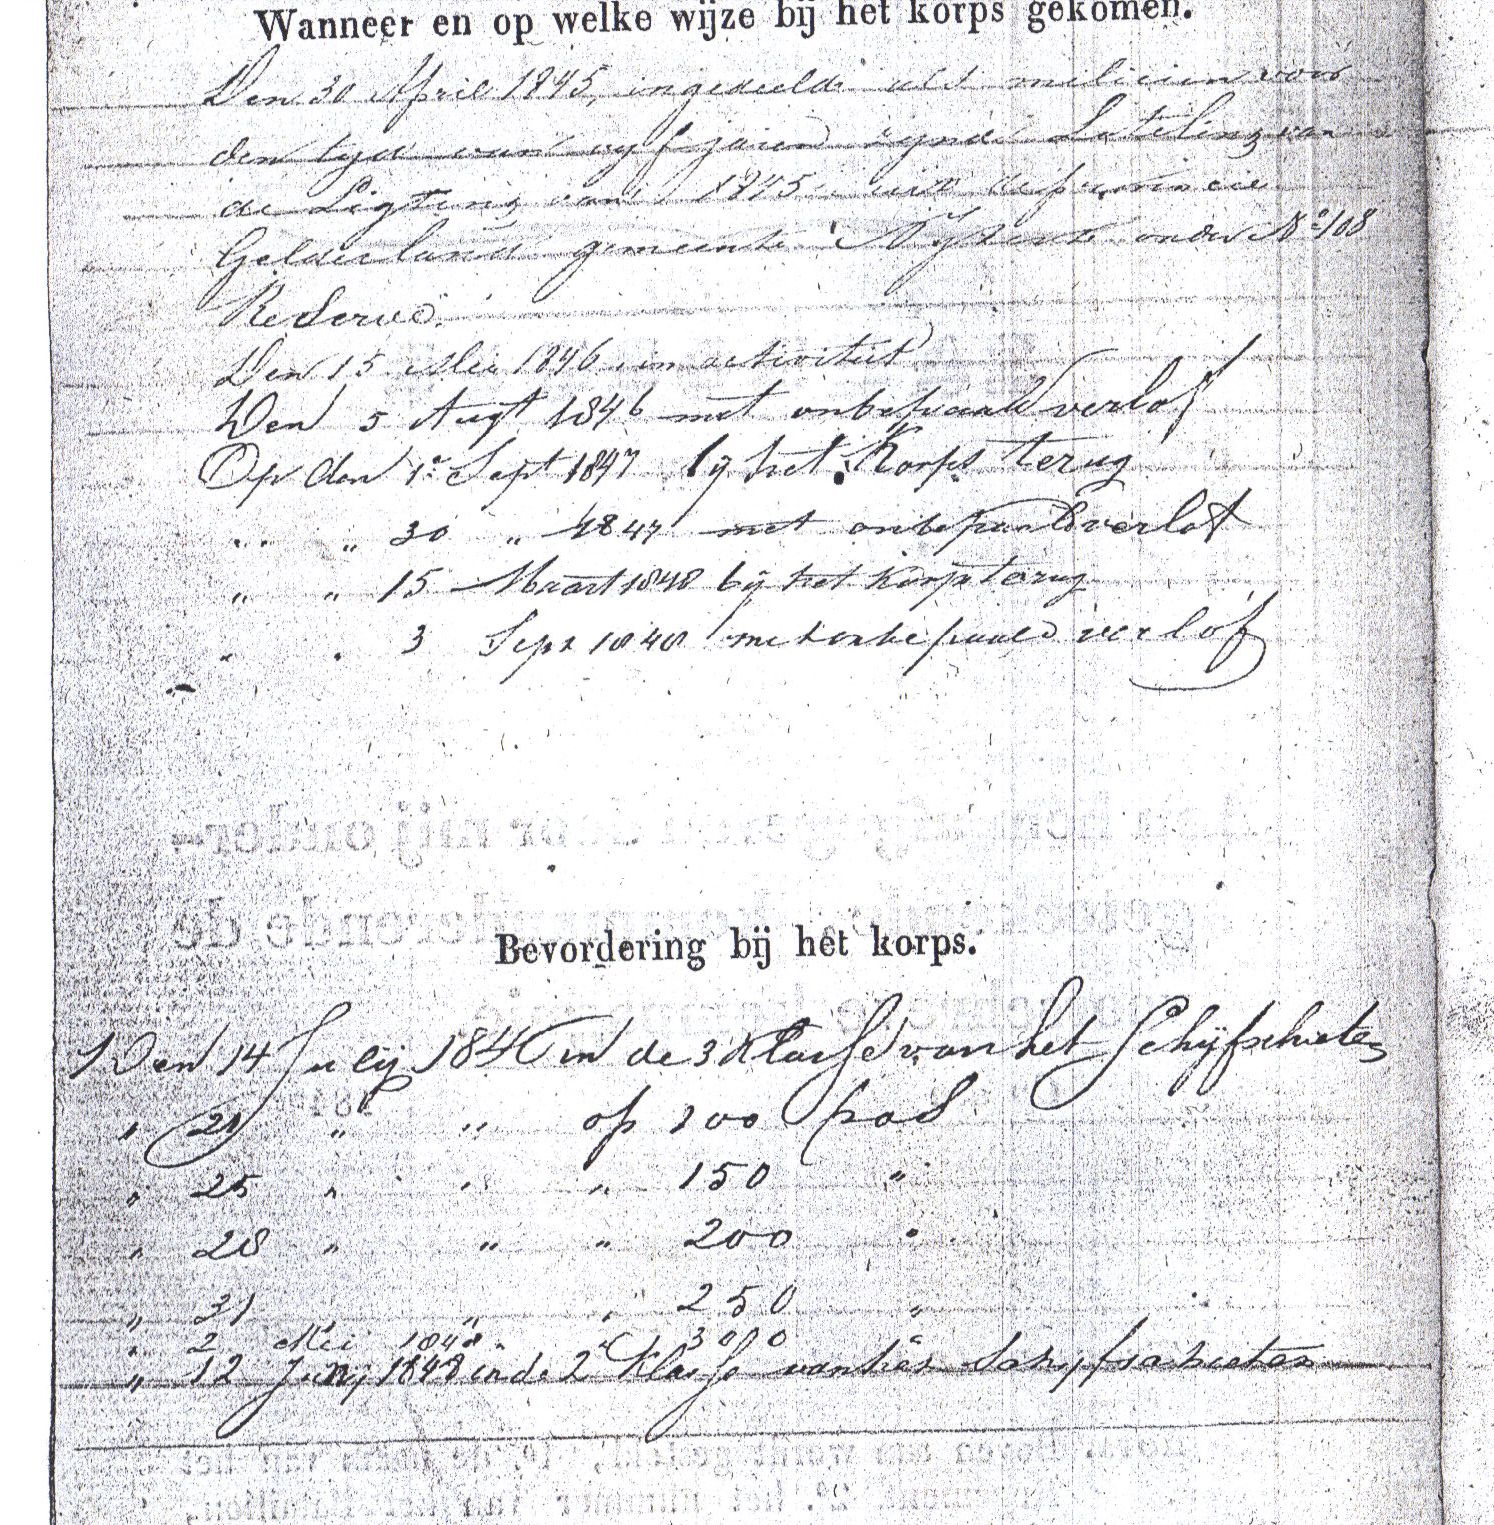 Wanneer en op welke wijze bij het korps gekomen.
Den 30 April 1845, ingedeeld als milicien voor
den tyd van vyf jaren zynde Loteling van
de Ligting van 1845 uit de provincie
Gelderland gemeente Nykerk onder No 108
Reserve.
Den 15 Mei 1846 in activiteit
Den 5 Augt 1846 met onbepaald verlof
Op den 1e Sept 1847 bij het Korps terug
" " 30 " 1847 met onbepaald verlof
" " 15 Maart 1848 bij het korps terug
" " 3 Sept 1848 met onbepaald verlof
Bevordering bij het korps.
Den 14 Julij 1846 in de 3 Klasse van het Schijfschieten
" 21 " " op 100 pas
" 25 " " " 150 "
" 28 " " " 200 "
" 31 " " 250 "
" 2 Mei 1848 " 300
" 12 Junij 1848 in de 2e Klasse van het Schijfschieten